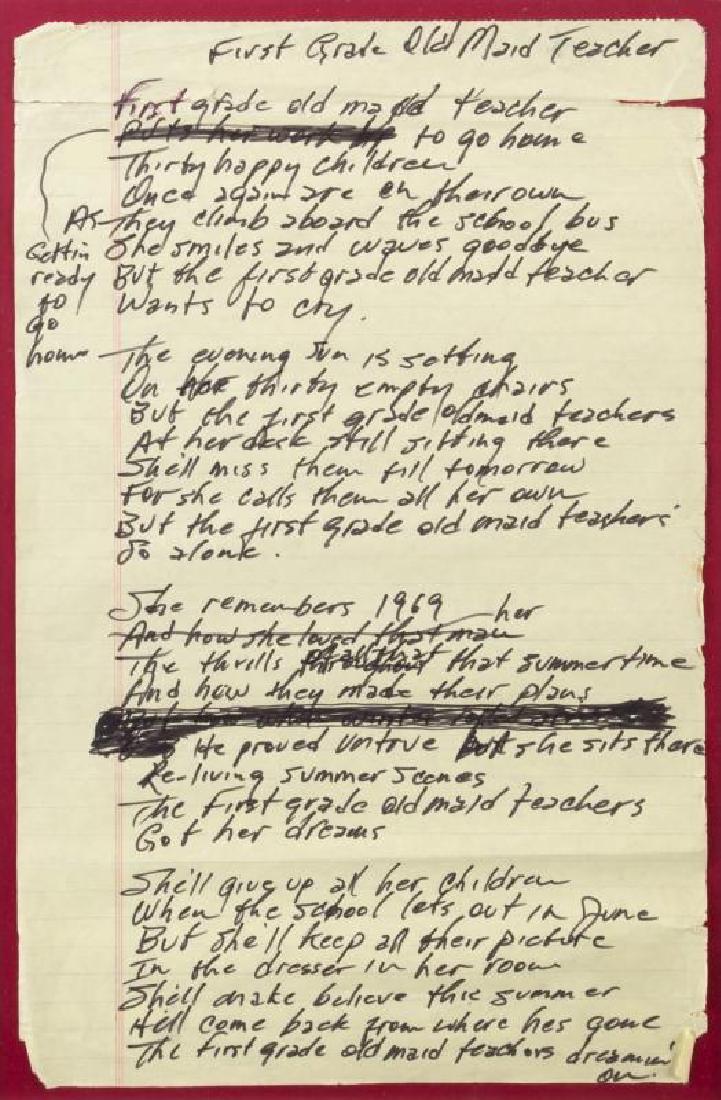 First Grade Old Maid Teacher
First grade old maid teacher
to go home
Thirty happy children
Once again are on their own
As They climb aboard the school bus
She smiles and waves goodbye
But the first grade old maid teacher
Wants to cry.
Gettin
ready
to
go
home
The evening sun is setting
On thirty empty chairs
But the first grade old maid teachers
At her desk still sitting there
She'll miss them till tomorrow
For she calls them all her own
But the first grade old maid teachers
So alone.
She remembers 1969
her
And how she loved that man
The thrills that summertime
And how they made their plans
He proved untrue but she sits there
Re-living summer scenes
The First grade old maid teachers
Got her dreams
She'll give up all her children
When the school lets out in June
But she'll keep all their picture
In the dresser in her room
She'll make believe this summer
He'll come back from where hes gone
The first grade old maid teachers dreamin'
on.